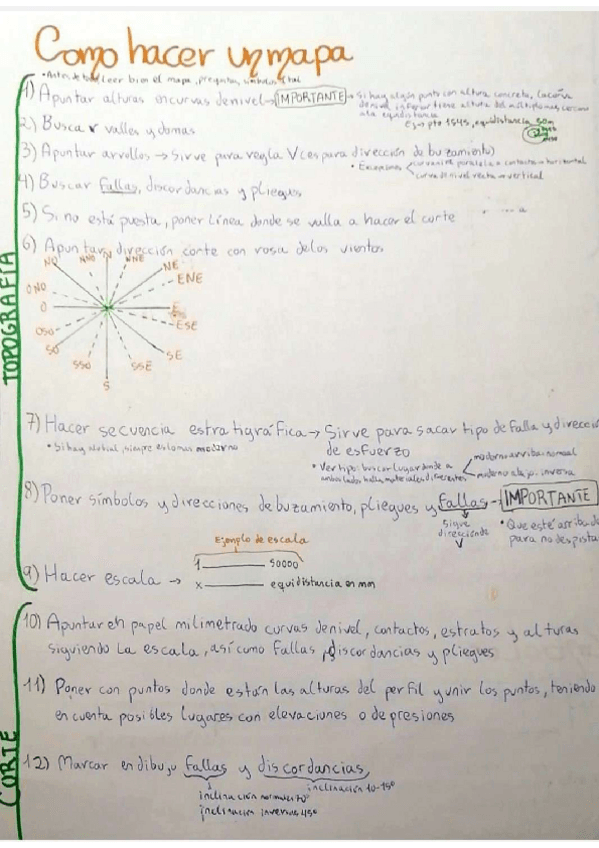 Como hacer un mapa
•Antes de todo leer bien el mapa, preguntas, símbolos y tal
1) Apuntar alturas en curvas de nivel → IMPORTANTE → Si hay algún punto con altura concreta, la curva
de nivel inferior tiene altura del múltiplo más cercano
a la equidistancia
Ej → pto 1545, equidistancia 50m
2) Buscar valles y domas
3) Apuntar arrollos → Sirve para regla V (es para dirección de buzamiento)
• Excepciones curvanivel paralela a contacto → horizontal
curva de nivel recta → vertical
4) Buscar fallas, discordancias y pliegues
5) Si no está puesta, poner línea donde se valla a hacer el corte
6) Apuntar dirección corte con rosa de los vientos
NO NNO N NNE NE
ENE
ONO
O E
OSO ESE
SO SE
SSO SSE
S
TOPOGRAFÍA
7) Hacer secuencia estratigráfica → Sirve para sacar tipo de falla y direcció
de esfuerzo
• Si hay aluvial, siempre es lo mas moderno
• Ver tipo: buscar lugar donde a
ambos lados halla materiales diferentes
moderno arriba: normal
moderno abajo: inversa
8) Poner símbolos y direcciones de buzamiento, pliegues y fallas → IMPORTANTE
sigue
direcciónde
V
• Que esté arriba d
para no despista
Ejemplo de escala
1 ——— 50000
9) Hacer escala → x ——— equidistancia en mm
10) Apuntar en papel milimetrado curvas de nivel, contactos, estratos y alturas
siguiendo la escala, así como fallas, discordancias y pliegues
11) Poner con puntos donde están las alturas del perfil y unir los puntos, teniendo
en cuenta posibles lugares con elevaciones o depresiones
CORTE
12) Marcar en dibujo fallas y discordancias
inclinación normales 70°
inclinación inversas 45°
inclinación 10-15°